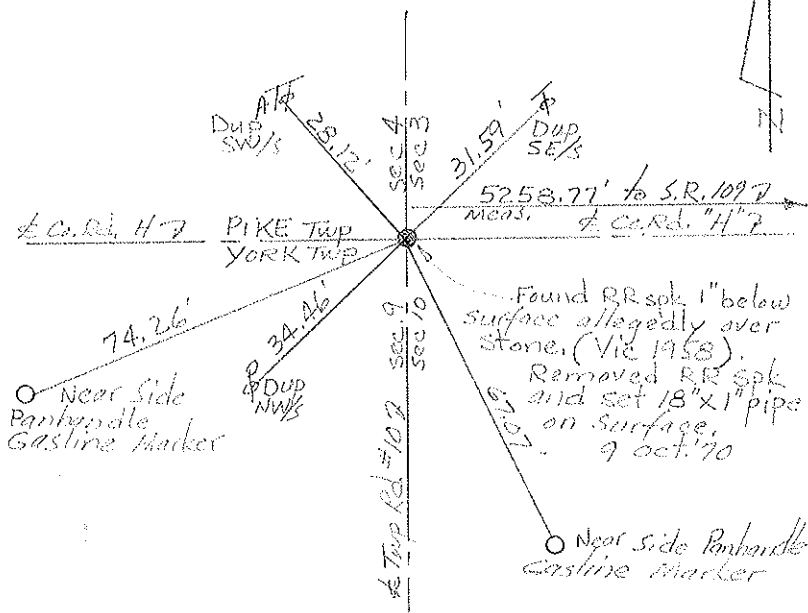 N
Dup
SW/s
28.12'
sec 4
sec 3
31.59'
Dup
SE/s
5258.77' to S.R. 109
Meas.
℄ Co. Rd. H
PIKE Twp
YORK Twp
℄ Co. Rd. "H"
74.26'
34.46'
sec 9
sec 10
Found RR spk 1" below
surface allegedly over
stone. (Vic 1958).
Removed RR spk
and set 18" x 1" pipe
on surface.
9 Oct. '70
Dup
NW/s
Near Side
Panhandle
Gasline Marker
℄ Twp Rd. #10
Near Side Panhandle
Gasline Marker